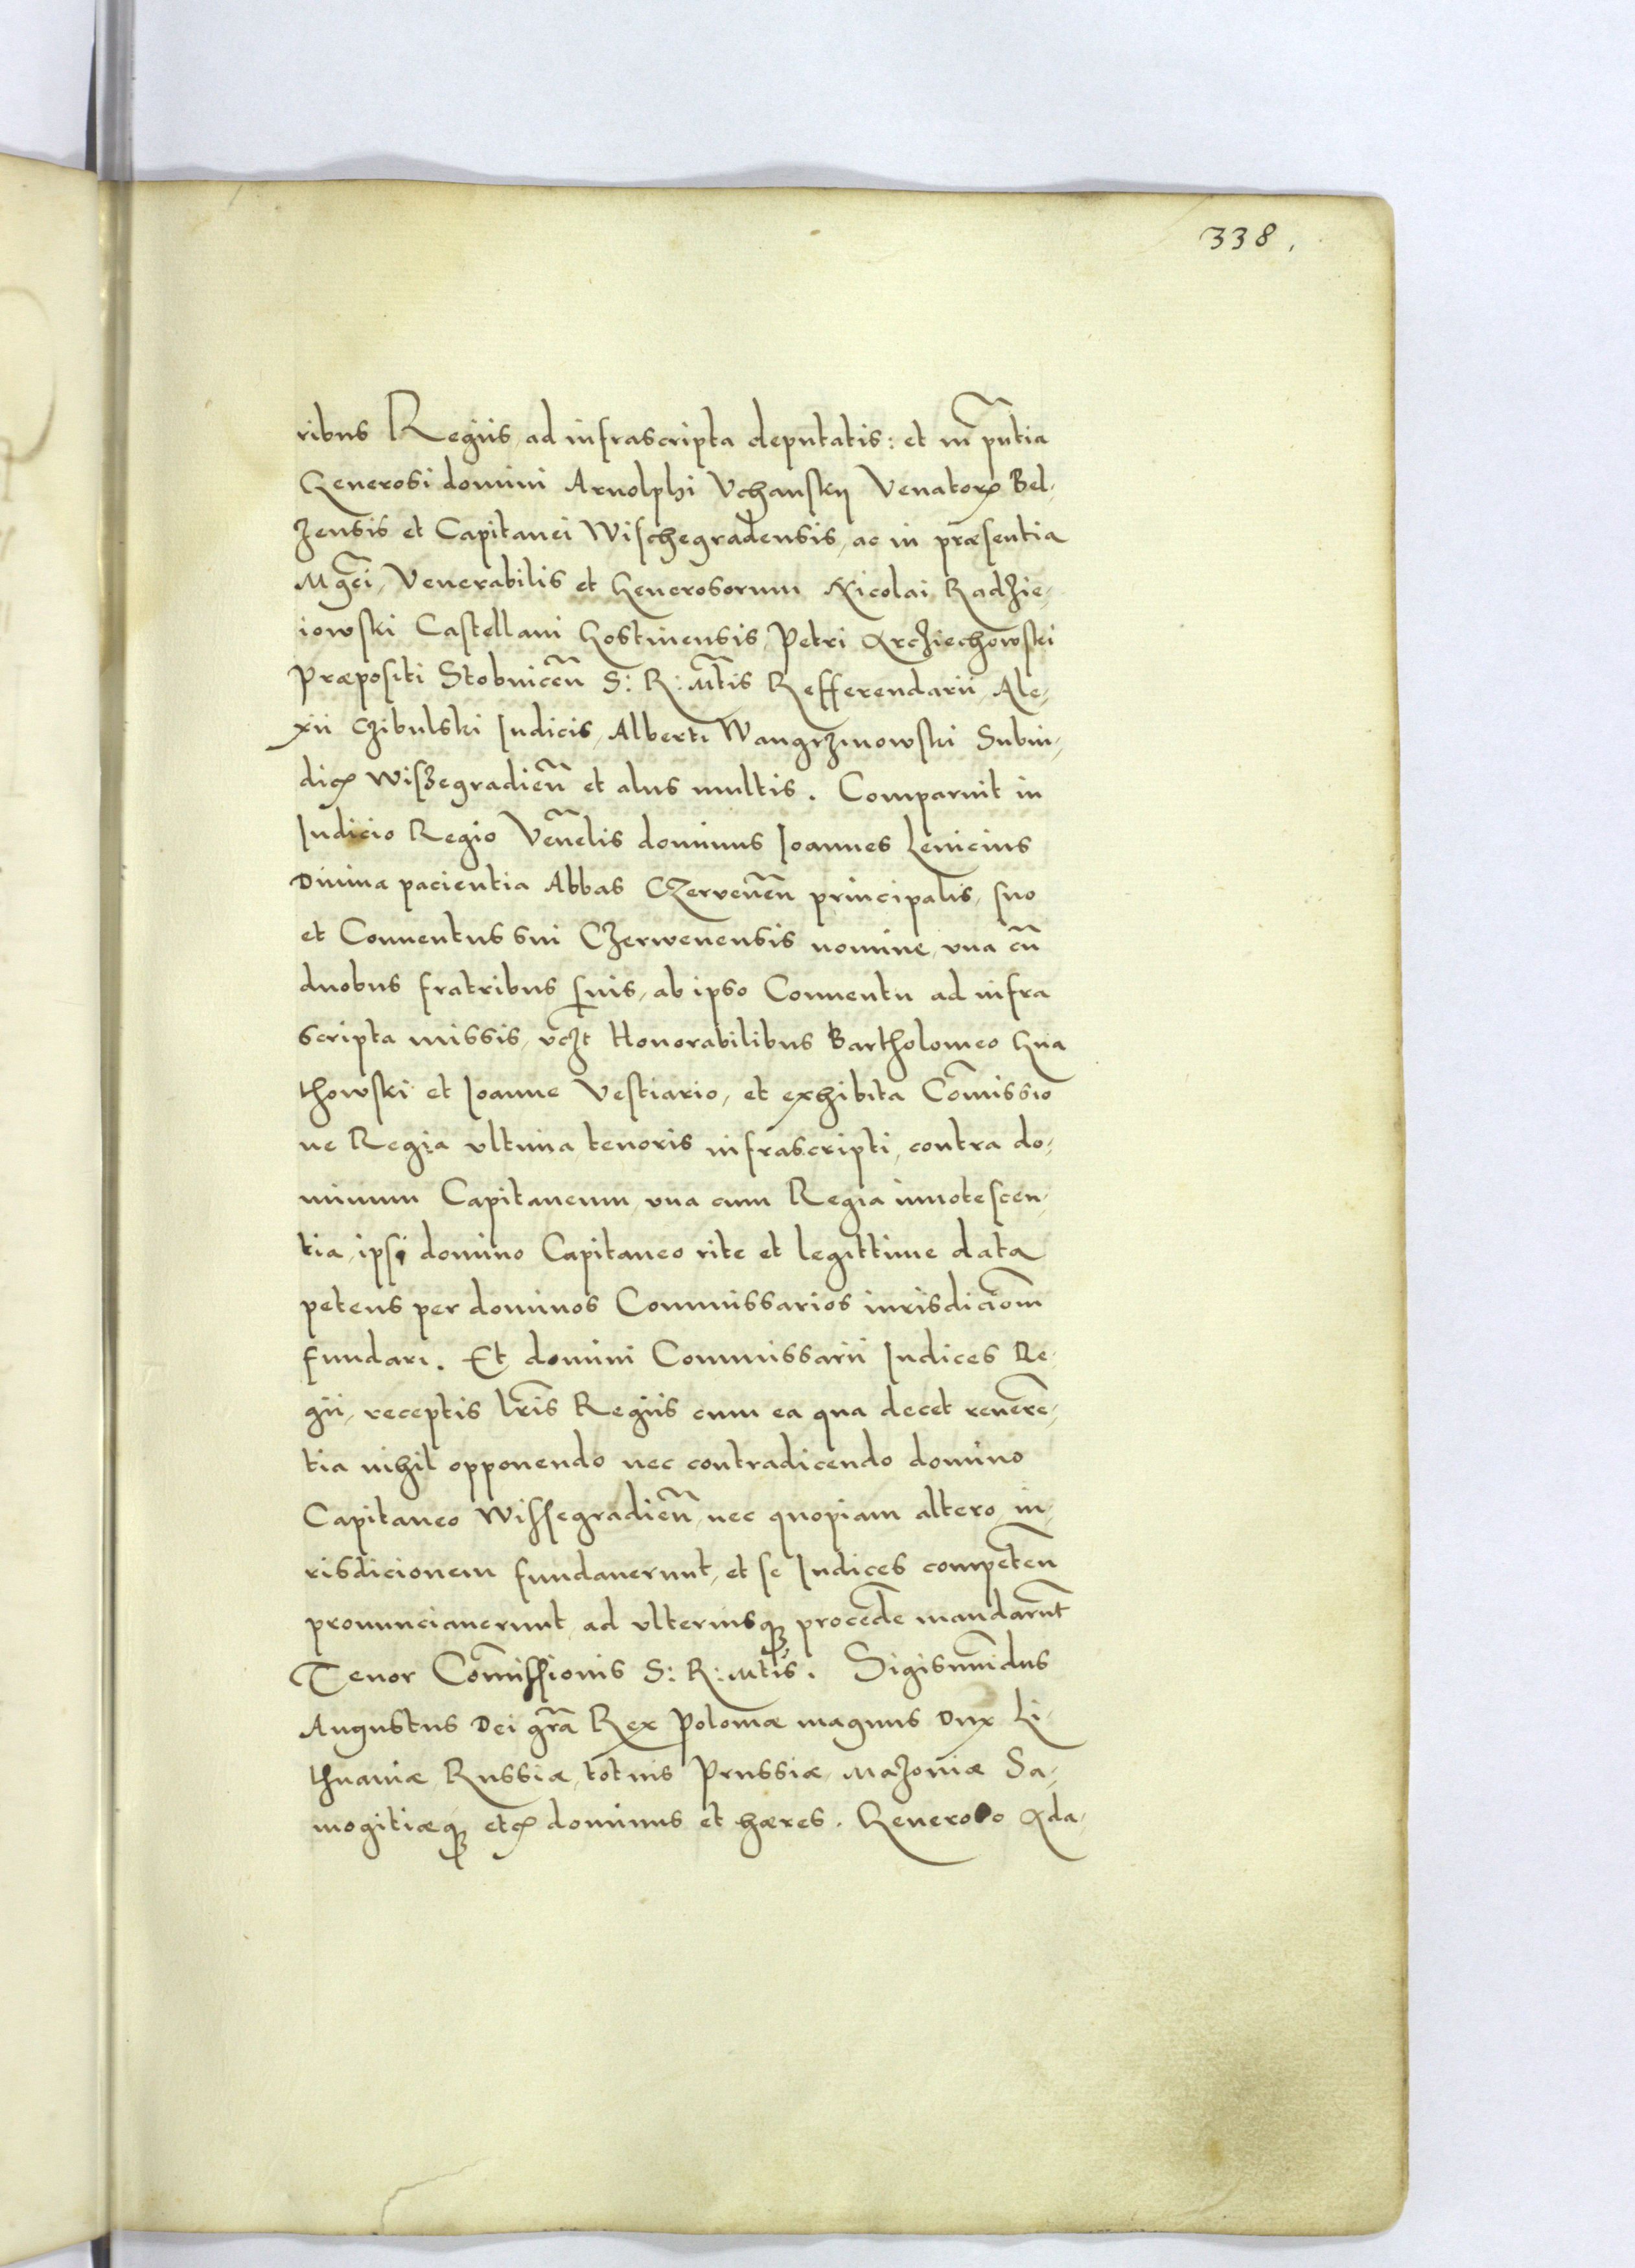 338.
ribus Regiis, ad infrascripta deputatis: et in pñtia
Generosi domini Arnolphi Vchanskij Venatoris Bel-
zensis et Capitanei Wischegradensis, ac in præsentia
Mgci, Venerabilis et Generosorum Nicolai Radzie-
iowski Castellani Gostinensis, Petri Orcziechowski
Præpositi Stobnicen̄ S: R: Mtis Refferendarii, Ale-
xii Czibulski Iudicis, Alberti Wangrzinowski Subiu-
dicis Wiszegradien̄ et aliis multis. Comparuit in
Iudicio Regio Venēlis dominus Ioannes Lenicius
Diuina pacientia Abbas Czerwenen̄ principalis, suo
et Conuentus sui Czerwenensis nomine, vna cū
duobus fratribus suis, ab ipso Conuentu ad infra
scripta missis, vczt Honorabilibus Bartholomeo Gna
thowski et Ioanne Vestiario, et exhibita Com̄issio
ne Regia vltima, tenoris infrascripti, contra do-
minum Capitaneum, vna cum Regia innotescen-
tia, ipsi domino Capitaneo rite et legittime data
petens per dominos Commissarios iurisdiciom̄
fundari. Et domini Commissarii Iudices Re-
gii, receptis lr̄is Regiis cum ea qua decet reuerē-
tia nihil opponendo nec contradicendo domino
Capitaneo Wissegradien̄, nec quopiam altero, iu-
risdicionem fundauerunt, et se Iudices competen̄
pronunciauerunt, ad vlteriusq; proced̄e mandarūt
Tenor Com̄issionis S: R: Mtis. Sigismūdus
Augustus Dei gr̄a Rex Poloniæ magnus Dux Li-
thuaniæ, Russiæ, totius Prussiæ, Mazouiæ Sa-
mogitiæq; etc dominus et hæres. Generoso Ada-